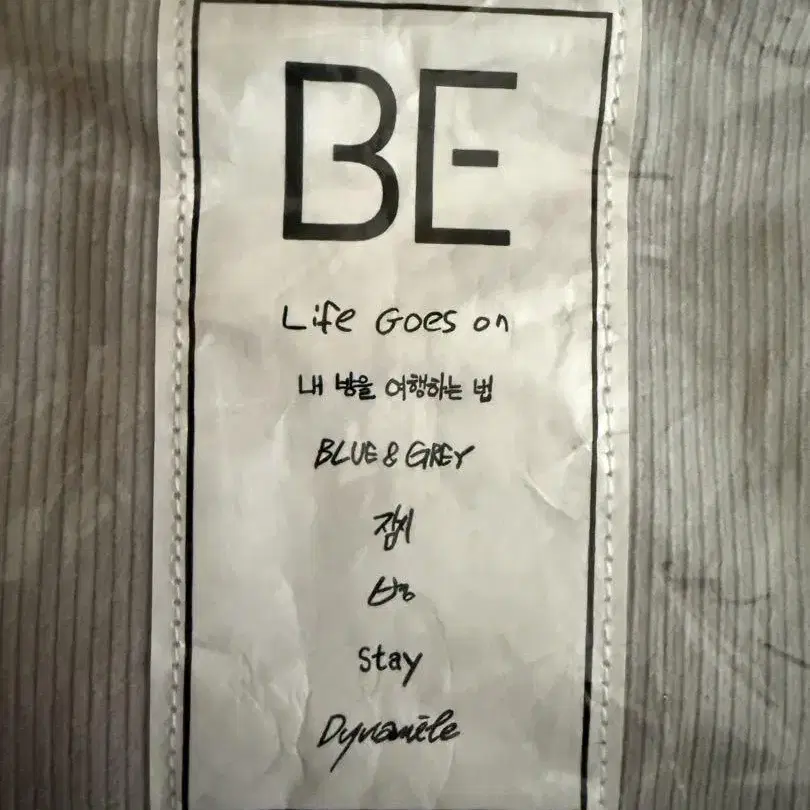 BE
Life Goes on
내 방을 여행하는 법
BLUE & GREY
잠시
병
Stay
Dynamite